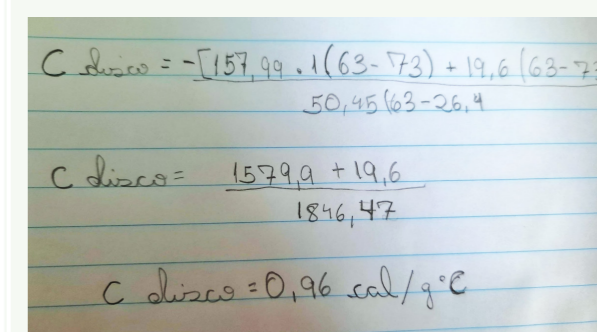 C disco = -[157,99 . 1(63-73) + 19,6 (63-73
50,45(63-26,4
C disco = 1579,9 + 19,6
1846,47
C disco = 0,96 cal/g°C